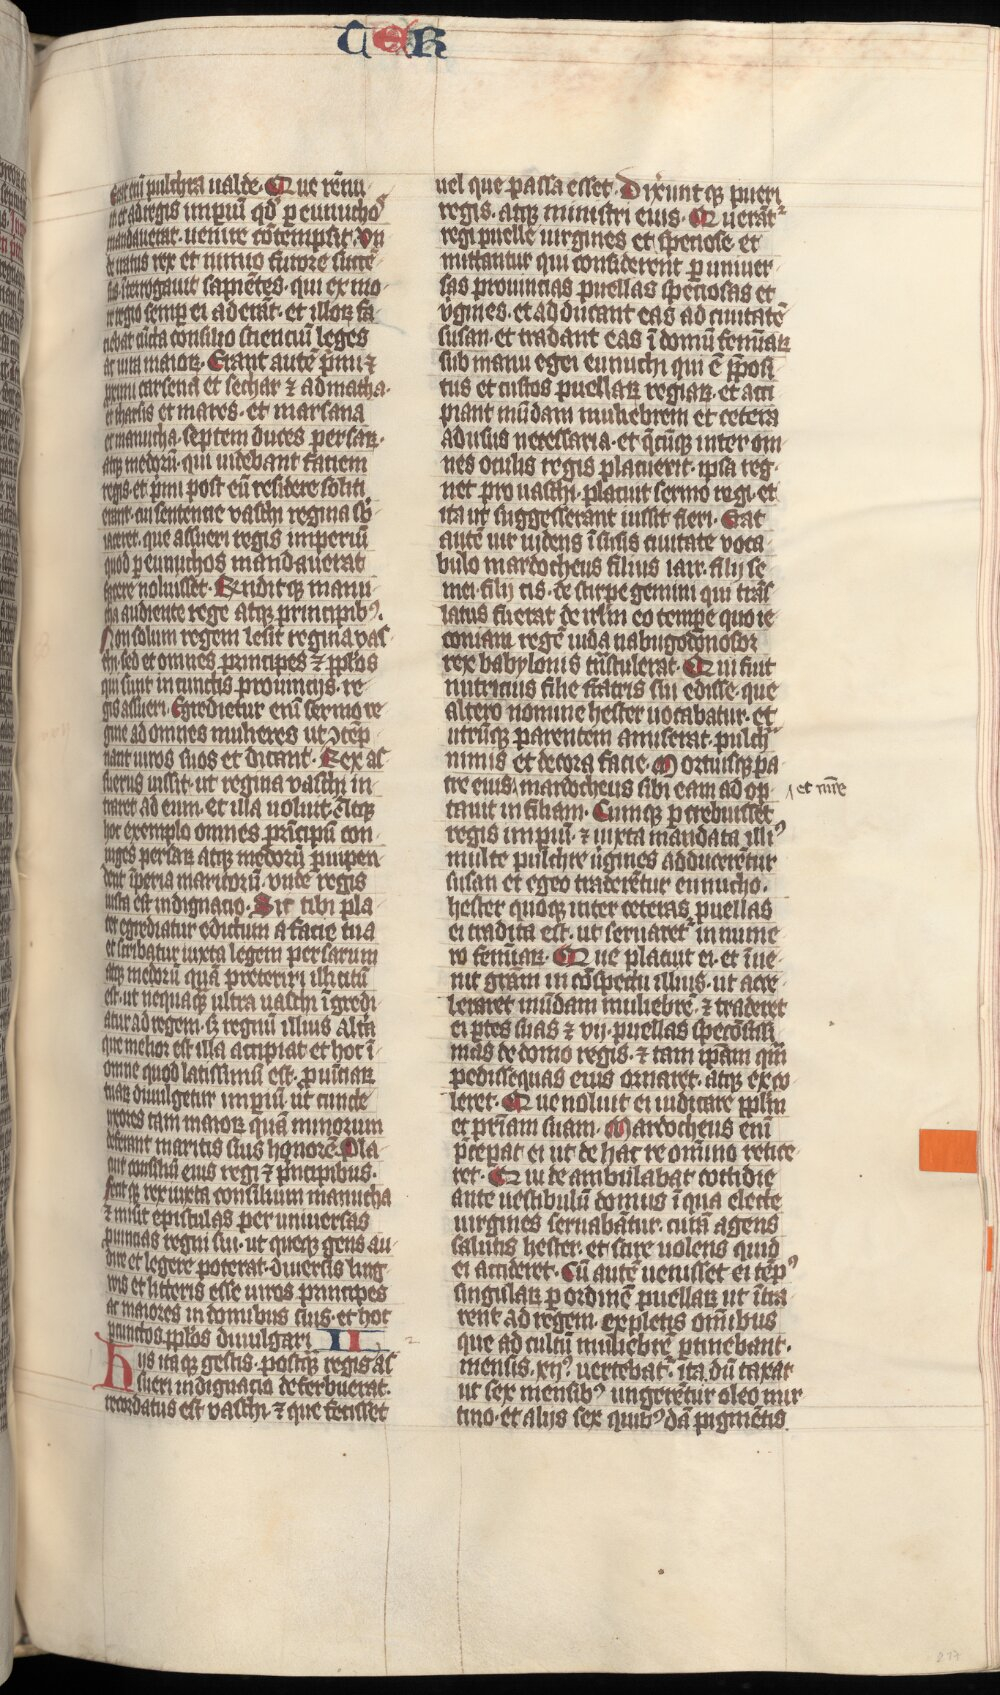 TER
erat enim pulchra ualde. Que renu
it et ad regis imperiũ qd̃ p eunuchos
mandauerat. uenire cõtempsit. Vn
de iratus rex et nimio furore succe
sus. ĩterrogauit sapiẽtes. qui ex mo
re regio semp ei aderãt. et illoꝝ fa
ciebat cũcta consilio scienciũ leges
ac iura maioꝝ. Erant autẽ p̃mi ⁊
primi carsena et sechar ⁊ admatha.
et tharsis et mares. et marsana
et manucha. septem duces persaꝝ.
atqꝫ medorũ. qui uidebant faciem
regis. et p̃mi post eũ residere soliti
erant. cui sentencie vasthi regina sb̾
iaceret. que assueri regis imperiũ
quod p eunuchos mandauerat
facere noluisset. Rñditqꝫ manu
cha audiente rege atqꝫ principibꝰ.
Non solum regem lesit regina vas
thi. sed et omnes principes ⁊ ppl̃os
qui sunt in cunctis prouincijs. re
gis assueri. Egredietur eni sermo re
gine ad omnes mulieres ut ꝯtẽp
nant uiros suos et dicant. Rex as
suerus iussit. ut regina vasthi in
traret ad eum. et illa noluit. Atqꝫ
hoc exemplo omnes principũ con
iuges persaꝝ atqꝫ medorũ puipen
dent ĩperia maritorũ. vnde regis
iusta est indignacio. Si tibi pla
cet egrediatur edictum a facie tua
et scribatur iuxta legem persarum
atqꝫ medorũ quã preteriri illicitũ
est. ut nequaqꝫ ultra uasthi ĩgredi
atur ad regem. sꝫ regnũ illius altera
que melior est illa accipiat et hoc ĩ
omne quod latissimũ est. puĩciaꝝ
tuaꝝ diuulgetur imperiũ. ut cuncte
uxores tam maioꝝ quã minorum
deferant maritis suis honorẽ. Pla
cuit consiliũ eius regi ⁊ p̃ncipibus.
fecitqꝫ rex iuxta consilium manucha
⁊ misit epistulas per uniuersas
puincias regni sui. ut queqꝫ gens au
dire et legere poterat. diuersis ling
wis et litteris esse uiros principes
ac maiores in domibus suis. et hoc
p cunctos ppl̃os diuulgari II
Hijs itaqꝫ gestis. postqꝫ regis as
sueri indignacio deferbuerat.
recordatus est vasthi. ⁊ que fecisset
uel que passa esset. Dixuntqꝫ pueri
regis. atqꝫ ministri eius. Querãt̾
regi puelle uirgines et speciose. et
mittantur qui considerent p uniuer
sas prouincias puellas speciosas et
v̾gines. et adducant eas ad ciuitatẽ
susan. et tradant eas ĩ domũ feminaꝝ
sub manu egei eunuchi qui ẽ p̃posi
tus et custos puellaꝝ regiaꝝ. et acci
piant mũdam muliebrem et cetera
ad usus necessaria. et q̃cũqꝫ inter om
nes oculis regis placuerit. ipsa reg
net pro uasthi. placuit sermo regi. et
ita ut suggesserant iussit fieri. Erat
autẽ uir iudeus ĩ susis ciuitate voca
bulo mardocheus filius iair. filij se
mei. filij cis. de stirpe gemini qui trãs
latus fuerat de ierl̃m eo tempe quo ie
coniam regẽ iuda nabugodonosor
rex babylonis trãstulerat. Qui fuit
nutricius filie fratris sui edisse. que
altero nomine hester uocabatur. et
utrũqꝫ parentem amiserat. pulchr̃
nimis et decora facie. Mortuisqꝫ pa
tre eius ʌ mardocheus sibi eam adop
ʌ et mr̃e
tauit in filiam. Cumqꝫ pcrebuisset
regis imperiũ. ⁊ iuxta mandata illiꝰ
multe pulchre uigines adducerẽtur
susan et egeo traderẽtur eunucho.
hester quoqꝫ inter ceteras puellas
ei tradita est. ut seruaret̾ in nume
ro feminaꝝ. Que placuit ei. et ĩue
nit grãm in cõspectu illius. ut acce
leraret mũdam muliebrẽ. ⁊ traderet
ei ptes suas ⁊ vij. puellas specosissi
mas de domo regis. ⁊ tam ip̃am qm̃
pedissequas eius ornaret. atqꝫ exco
leret. Que noluit ei iudicare ppl̃m
et pr̃iam suam. Mardocheus eni
p̃cepat ei ut de hac re omnino retice
ret. Qui deambulabat cottidie
ante uestibulũ domus ĩ qua electe
uirgines seruabãtur. curã agens
salutis hester. et scire uolens quid
ei accideret. Cũ autẽ uenisset ei tẽpꝰ
singulaꝝ p ordinẽ puellaꝝ ut ĩtra
rent ad regem. expletis omibus
que ad cultũ muliebrẽ ptinebant.
mensis. xijꝰ. uertebat̾. ita dũtaxat
ut sex mensibꝰ ungerẽtur oleo mir
tino. et alijs sex quibꝰdã pigmẽtis.
217